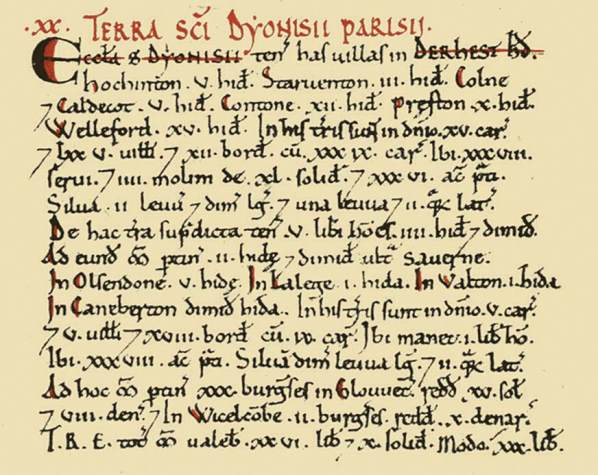 .xx. TERRA SCĪ DYONISII PARISII.
Eccła S DYONISII ten̄ has uillas in DERHEST hđ.
hochinton . v . hiđ . Staruenton . iii . hiđ . Colne
⁊ Caldecot . v . hiđ . Contone . xii . hiđ . Preston . x . hiđ .
⁊ Welleford . xv . hiđ . In his t̄ris suɴt̄ in dn̄io . xv . car̄ .
⁊ lxx v . uiłłi ⁊ xii . borđ . cū . xxx ix . car̄ . Ibi . xxxviii .
serui . ⁊ iiii . molini de . xl . soliđ . ⁊ xxxvi . ac̄ p̄ti .
Silua . ii leuu͛ ⁊ dim̄ lg̅ . ⁊ una leuua ⁊ ii . q̄ꝝ lat̄ .
De hac t̄ra sup̱dicta ten̄ . v . liƀi hōes . iiii . hiđ ⁊ dimiđ .
Ad eund̄ ꝏ ptin̄ . ii . hidę ⁊ dimiđ ult̄ Sauerne .
In Olsendone . v . hidę . In Lalege . i . hida . In Valton . i . hida
In Caneberton dimiđ hida . . In his t̄ris sunt in dn̄io . v . car̄ .
⁊ v . uiłłi ⁊ xviii . borđ cū . ix . car̄ . Ibi manet . i . liƀ hō .
Ibi . xxxviii . ac̄ p̄ti . Siluā dim̄ leuua lg̅ . ⁊ ii . q̄ꝝ lat̄ .
Ad hoc ꝏ ptin̄ xxx . burg̅ses in Glouuec̄ . redđ xv . soł
⁊ viii . den̄ . ⁊ In Wicelcōbe . ii . burgeses redđ . x . denar̄ .
T . R . E . tot̄ ꝏ ualeƀ . xxvi . liƀ ⁊ x . soliđ . Modo . xxx . liƀ .